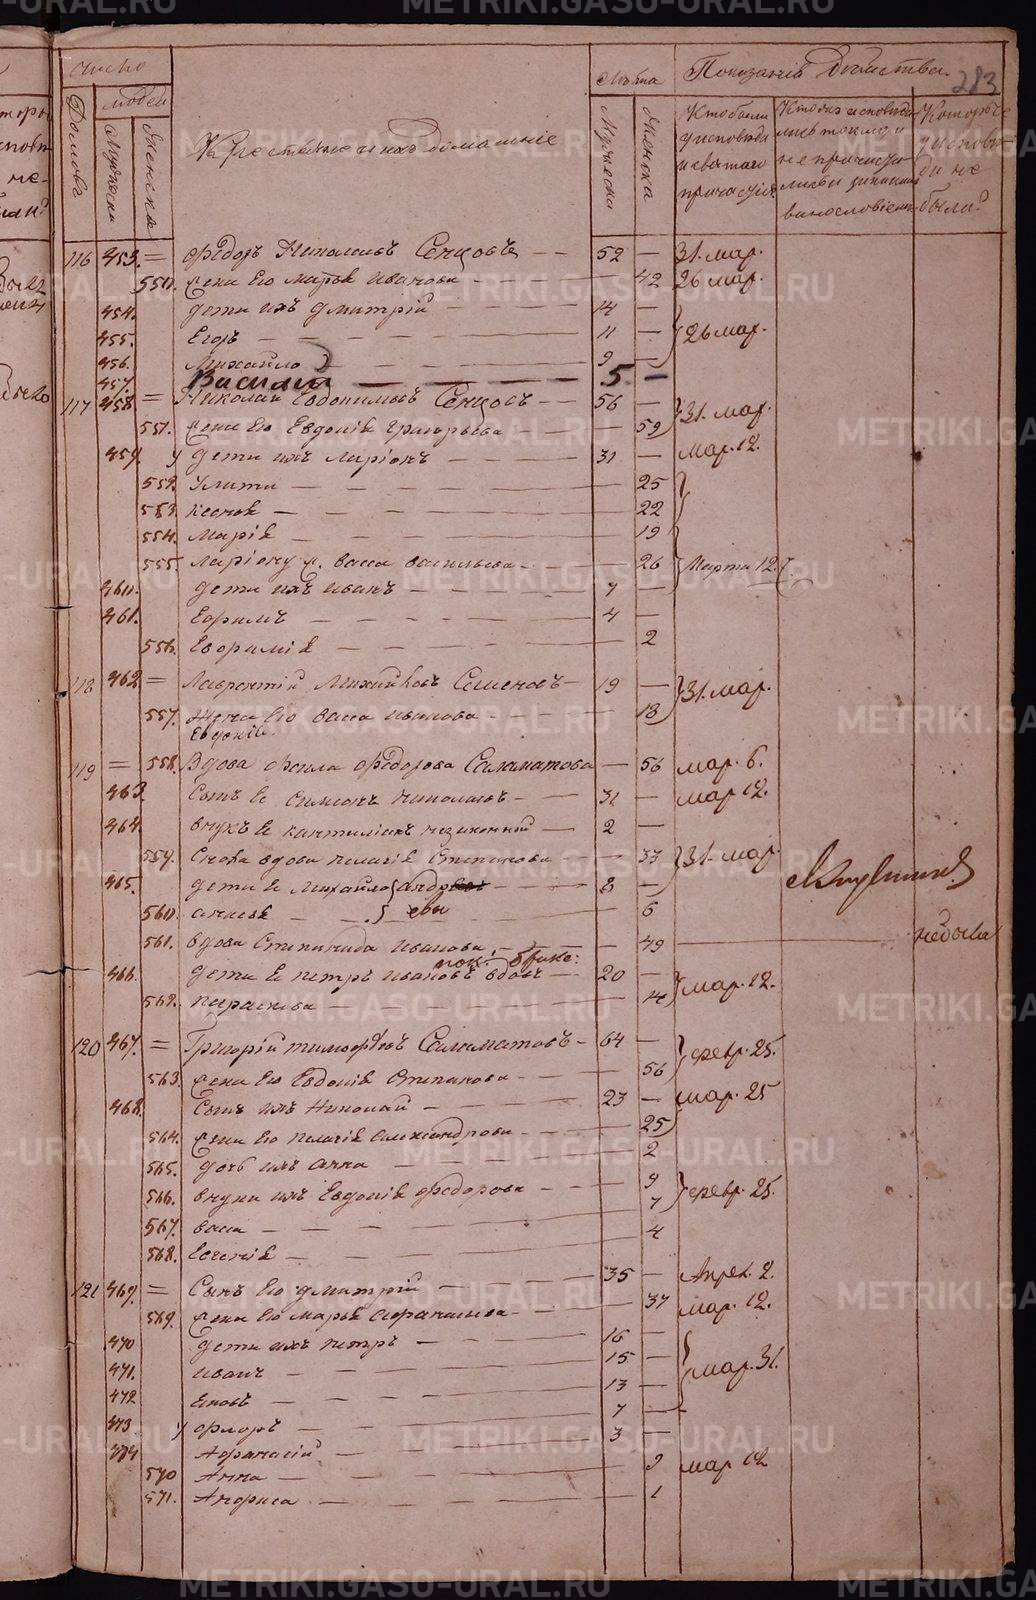 283
Число
людей
Домовъ
Мужеска
Женска
Крестьяне и ихъ домашніе
Лѣта
Мужеска
Женска
Показаніе Действа.
Кто были у исповѣди и святаго причастія.
Кто жъ исповѣдались токмо а не причастились и за какимъ винословіемъ.
Которые у исповѣди не были?
116 453. = Федоръ Сенцовъ — 52 — 31. мар.
550. жена Его Марья Иванова — 42 26 мар.
454. дети ихъ Дмитрій — 14 —
455. Егоръ — 11 — 26 мар.
456. Михайло — 9 —
457. Василий — 5 —
117 458. = Николай Евдокимовъ Сенцовъ — 56 — 31. мар.
551. жена Его Евдокія Григорьева — 59
459. у дети ихъ Ларіонъ — 31 — мар. 12.
552. Улита — 25
553. Ксенья — 22
554. Марія — 19
555. Ларіону ж. Васса Васильева — 26 Марта 12.
460. дети ихъ Иванъ — 7 —
461. Ефримъ — 4 —
556. Евфимія — 2
118 462. = Лаврентій Михайловъ Семеновъ — 19 — 31. мар.
557. Жена Его Васса Иванова — 18
Евдокія
119 = 558. Вдова Фекла Федорова Саламатова — 56 мар. 6.
463. Сынъ Ее Симеонъ Николаевъ — 31 — мар 12.
464. внукъ Ее незаконный — 2 —
559. Сноха вдова Пелагія Степанова — 33 31. мар.
465. дети Ее Михайло Андре — 8 —
560. Анисья — евы 6
561. вдова Степанида Иванова — 49 — не была
466. дети Ее Петръ Ивановъ вдовъ — 20 — мар. 12.
562. Параскева — 14
120 467. = Григорій Тимофѣевъ Саламатовъ — 64 — февр. 25.
563. жена Его Евдокія Степанова — 56
468. Сынъ ихъ Николай — 23 — мар. 25
564. жена Его Пелагія Александрова — 25
565. дочь ихъ Анна — 2
566. внуки ихъ Евдокія Федорова — 9 февр. 25.
567. Васса — 7
568. Евгенія — 4
121 469. = Сынъ Его Дмитрій — 35 — Апрел. 2.
569. жена Его Марья Афанасьева — 37 мар. 12.
470 дети ихъ Петръ — 16 —
471. Иванъ — 15 — мар. 31.
472 Яковъ — 13 —
473 у Флоръ — 7 —
474 Афанасій — 3 —
570 Анна — 9 мар 12
571. Анфиса — 1
METRIKI.GASO-URAL.RU